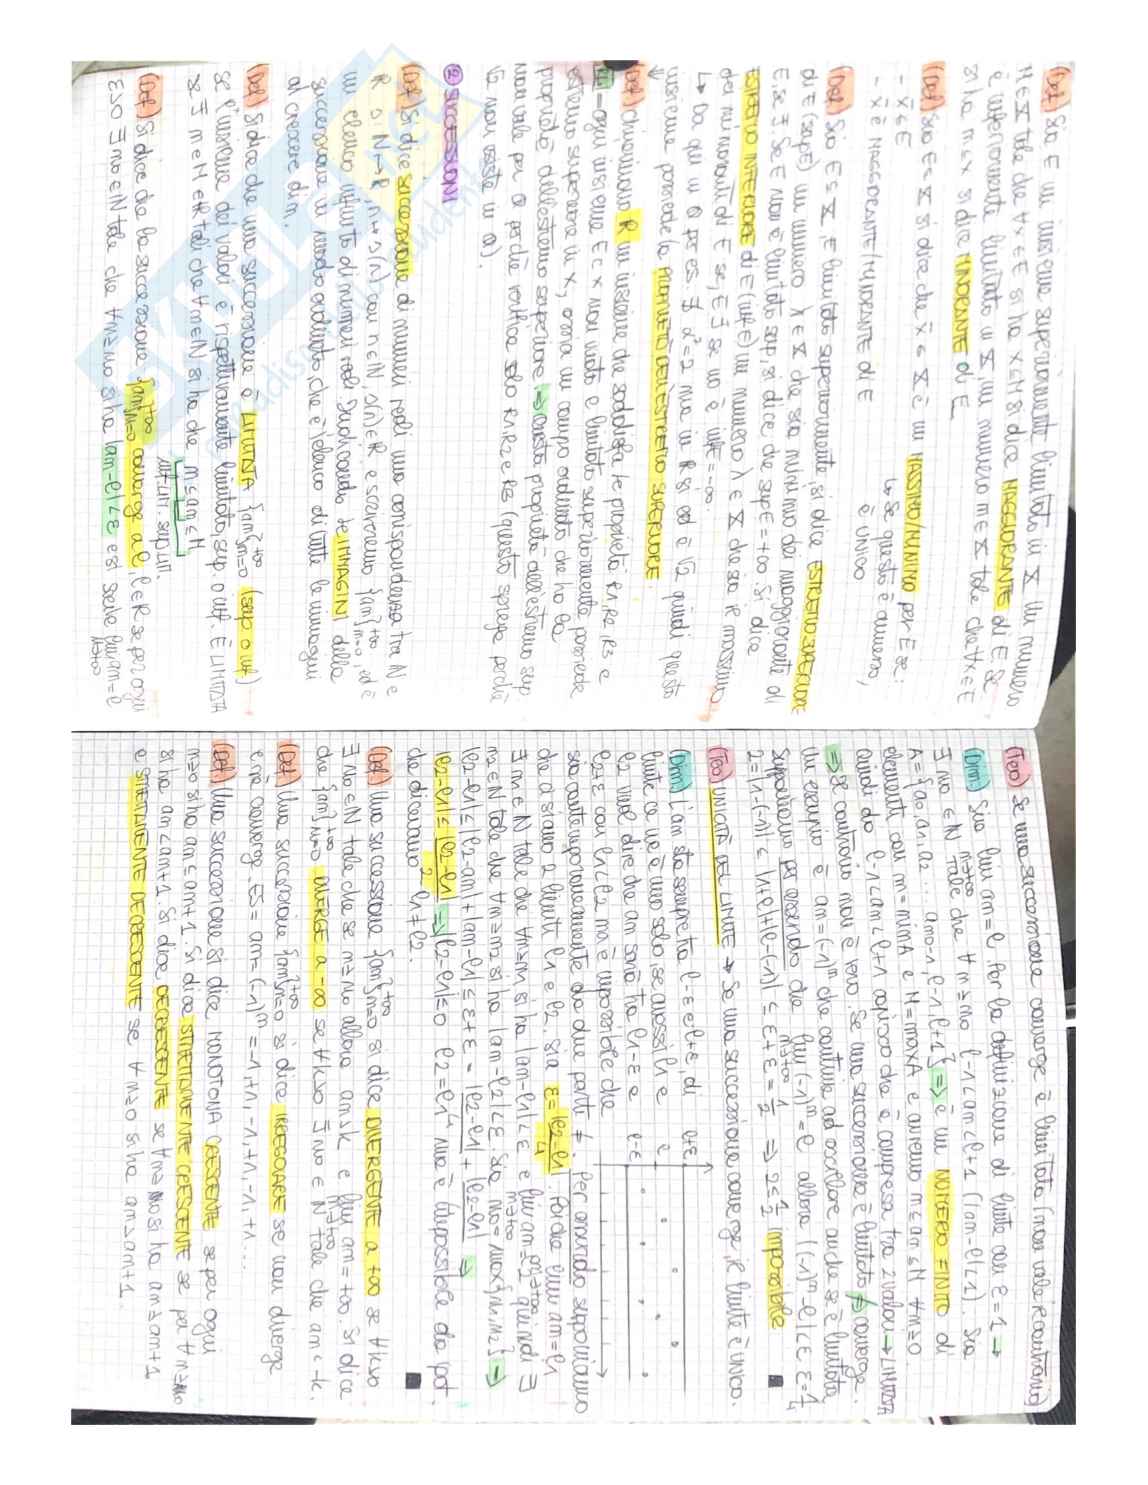 (Def) Sia E un insieme superiormente limitato in X un numero
M∈X tale che ∀x∈E si ha x≤M si dice MAGGIORANTE di E. Se
è inferiormente limitato in X, un numero m∈X tale che ∀x∈E
si ha m≤x si dice MINORANTE di E
(Def) Sia E⊆X si dice che x̄∈X è un MASSIMO/MINIMO per E se:
- x̄∈E ↳ se questo è avverso,
- x̄ è MAGGIORANTE/MINORANTE di E è UNICO
(Def) Sia E⊆X, E limitato superiormente, si dice ESTREMO SUPERIORE
di E (supE) un numero λ∈X che sia minimo dei maggioranti di
E, se ∃. Se E non è limitato sup, si dice che supE=+∞. Si dice
ESTREMO INFERIORE di E (infE) un numero λ∈X che sia il massimo
dei minoranti di E se, E ∃ se no è infE=-∞.
↳ Da qui in Q per es. ∄ α²=2 ma in R si ed è √2 quindi questo
insieme possiede la PROPRIETÀ DELL'ESTREMO SUPERIORE.
(Def) Chiamiamo R un insieme che soddisfa le proprietà R1, R2, R3 e
R4= ogni insieme E⊂X non vuoto e limitato superiormente possiede
estremo superiore in X, ossia un campo ordinato che ha la
proprietà dell'estremo superiore ⇒ questa proprietà dell'estremo sup.
non vale per Q perché verifica solo R1, R2 e R3 (questo spiega perché
√2 non esiste in Q).
② SUCCESSIONI
(Def) Si dice successione di numeri reali una corrispondenza tra N e
R s: N→R n↦s(n) con n∈N, s(n)∈R e scriveremo {an}+∞n=0, ed è
un elenco infinito di numeri reali. Indicando le IMMAGINI della
successione in modo ordinato, che è l'elenco di tutte le immagini
al crescere di n.
(Def) Si dice che una successione è LIMITATA {an}+∞n=0 (sup o inf)
se l'insieme dei valori è rispettivamente limitato sup. o inf. È LIMITATA
se ∃ m e M∈R tali che ∀n∈N si ha che m≤an≤M
INF.LIM. SUP.LIM.
(Def) Si dice che la successione {an}+∞n=0 converge a ℓ, ℓ∈R se per ogni
ε>0 ∃ n0∈N tale che ∀n≥n0 si ha |an-ℓ|<ε e si scrive lim an=ℓ
n→+∞
(Teo) Se una successione converge è limitata (non vale il contrario)
(Dim) Sia lim an=ℓ. Per la definizione di limite con ε=1 →
n→+∞
∃ n0∈N tale che ∀n≥n0 ℓ-1<an<ℓ+1 (|an-ℓ|<1). Sia
A={a0, a1, a2 ... an0-1, ℓ-1, ℓ+1} ⇒ è un NUMERO FINITO di
elementi con m=minA e M=maxA e avremo m≤an≤M ∀n≥0
quindi da ℓ-1<an<ℓ+1 capisco che è compresa tra 2 valori → LIMITATA
⇒ se contrario non è vero. Se una successione è limitata ⇏ converge.
Un esempio è an=(-1)ⁿ che continua ad oscillare anche se è limitata
Supponiamo per assurdo che lim (-1)ⁿ=ℓ allora |(-1)ⁿ-ℓ|<ε ε=1/4
n→+∞
2=|1-(-1)|≤|1+ℓ|+|ℓ-(-1)|≤ε+ε=1/2 ⇒ 2≤1/2 impossibile ■
(Teo) UNICITÀ DEL LIMITE → Se una successione converge, il limite è unico.
(Dim) L'an sta sempre tra ℓ-ε e ℓ+ε, di
limite ce n'è uno solo, se avessi ℓ1 e
ℓ2 vuol dire che an sarà tra ℓ1-ε e
ℓ2±ε con ℓ1<ℓ2 ma è impossibile che
ℓ+ε
ℓ
ℓ-ε
sia contemporaneamente da due parti ≠. Per assurdo supponiamo
che ci siano 2 limiti ℓ1 e ℓ2. sia ε=|ℓ2-ℓ1|/4. Poiché lim an=ℓ1
n→+∞
∃ n1∈N tale che ∀n≥n1 si ha |an-ℓ1|<ε e lim an=ℓ2 quindi ∃
n→+∞
n2∈N tale che ∀n≥n2 si ha |an-ℓ2|<ε. Sia n0=max{n1, n2} →
|ℓ2-ℓ1|≤|ℓ2-an|+|an-ℓ1|≤ε+ε=|ℓ2-ℓ1|/4+|ℓ2-ℓ1|/4 ⇒
|ℓ2-ℓ1|≤|ℓ2-ℓ1|/2 ⇒ |ℓ2-ℓ1|≤0 ℓ2=ℓ1 ma è impossibile da ipot.
che dicevamo ℓ1≠ℓ2. ■
(Def) Una successione {an}+∞n=0 si dice DIVERGENTE a +∞ se ∀k>0
∃ n0∈N tale che se n≥n0 allora an≥k e lim an=+∞. Si dice
n→+∞
che {an}+∞n=0 DIVERGE a -∞ se ∀k>0 ∃ n0∈N tale che an<-k.
(Def) Una successione {an}+∞n=0 si dice IRREGOLARE se non diverge
e né converge. ES= an=(-1)ⁿ=-1,+1,-1,+1,-1,+1...
(Def) Una successione si dice MONOTONA CRESCENTE se per ogni
n≥0 si ha an≤an+1. Si dice STRETTAMENTE CRESCENTE se per ∀n≥n0
si ha an<an+1. Si dice DECRESCENTE se ∀n≥n0 si ha an≥an+1
e STRETTAMENTE DECRESCENTE se ∀n≥0 si ha an>an+1.